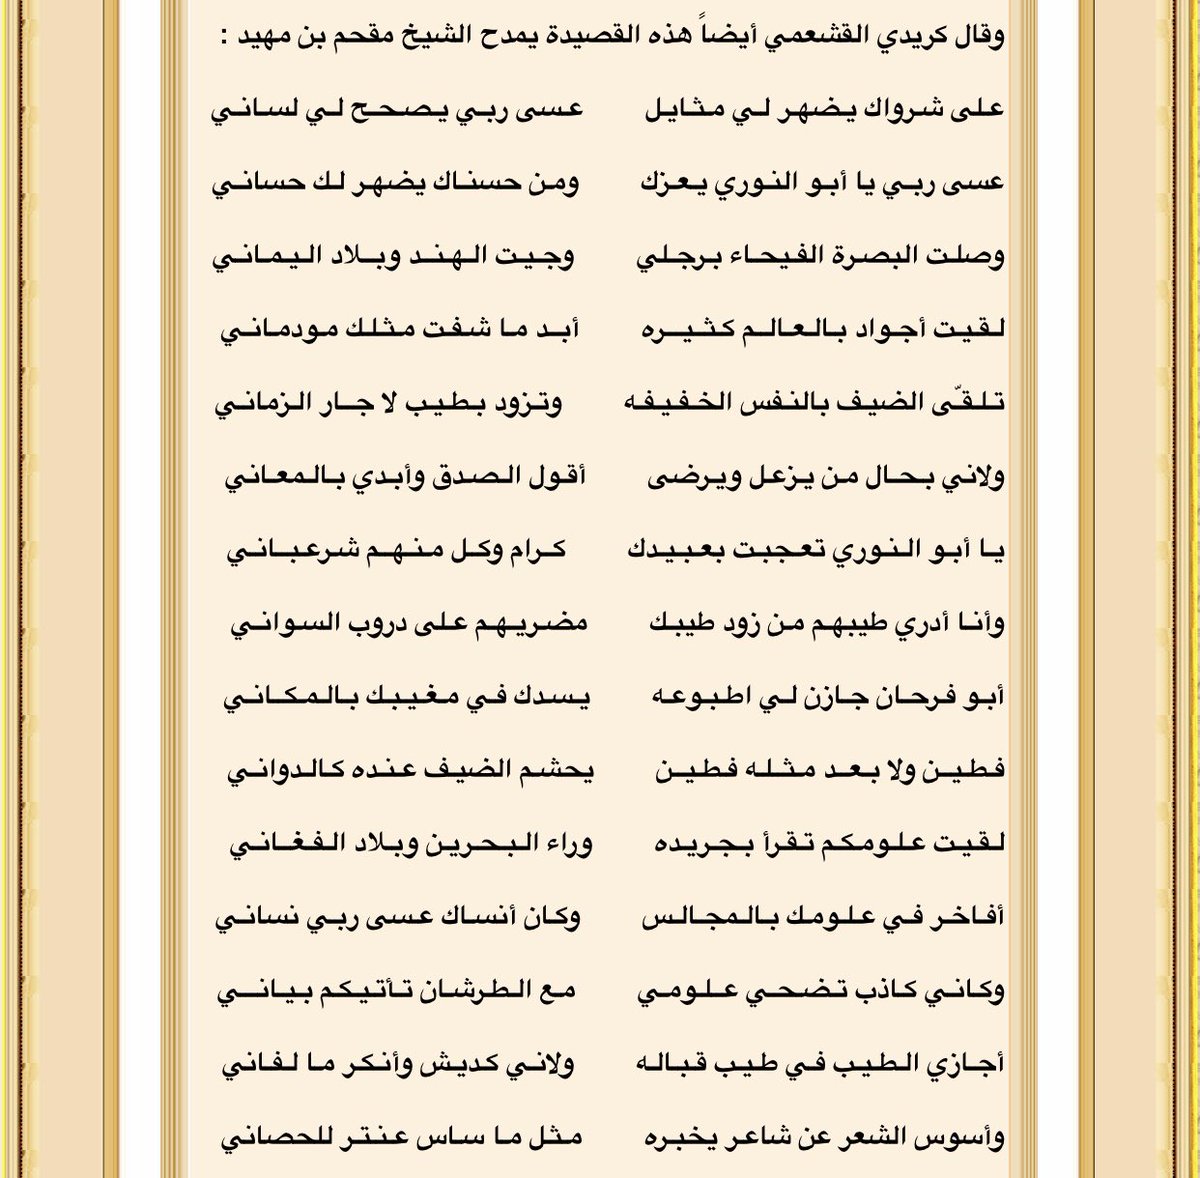 وقال كريدي القشعمي أيضاً هذه القصيدة يمدح الشيخ مقحم بن مهيد :
على شرواك يضهر لي مثايل عسى ربي يصحح لي لساني
عسى ربي يا أبو النوري يعزك ومن حسناك يضهر لك حساني
وصلت البصرة الفيحاء برجلي وجيت الهند وبلاد اليماني
لقيت أجواد بالعالم كثيره أبد ما شفت مثلك مودماني
تلقّى الضيف بالنفس الخفيفه وتزود بطيب لا جار الزماني
ولاني بحال من يزعل ويرضى أقول الصدق وأبدي بالمعاني
يا أبو النوري تعجبت بعبيدك كرام وكل منهم شرعباني
وأنا أدري طيبهم من زود طيبك مضريهم على دروب السواني
أبو فرحان جازن لي اطبوعه يسدك في مغيبك بالمكاني
فطين ولا بعد مثله فطين يحشم الضيف عنده كالدواني
لقيت علومكم تقرأ بجريده وراء البحرين وبلاد الفغاني
أفاخر في علومك بالمجالس وكان أنساك عسى ربي نساني
وكاني كاذب تضحي علومي مع الطرشان تأتيكم بياني
أجازي الطيب في طيب قباله ولاني كديش وأنكر ما لفاني
وأسوس الشعر عن شاعر يخبره مثل ما ساس عنتر للحصاني